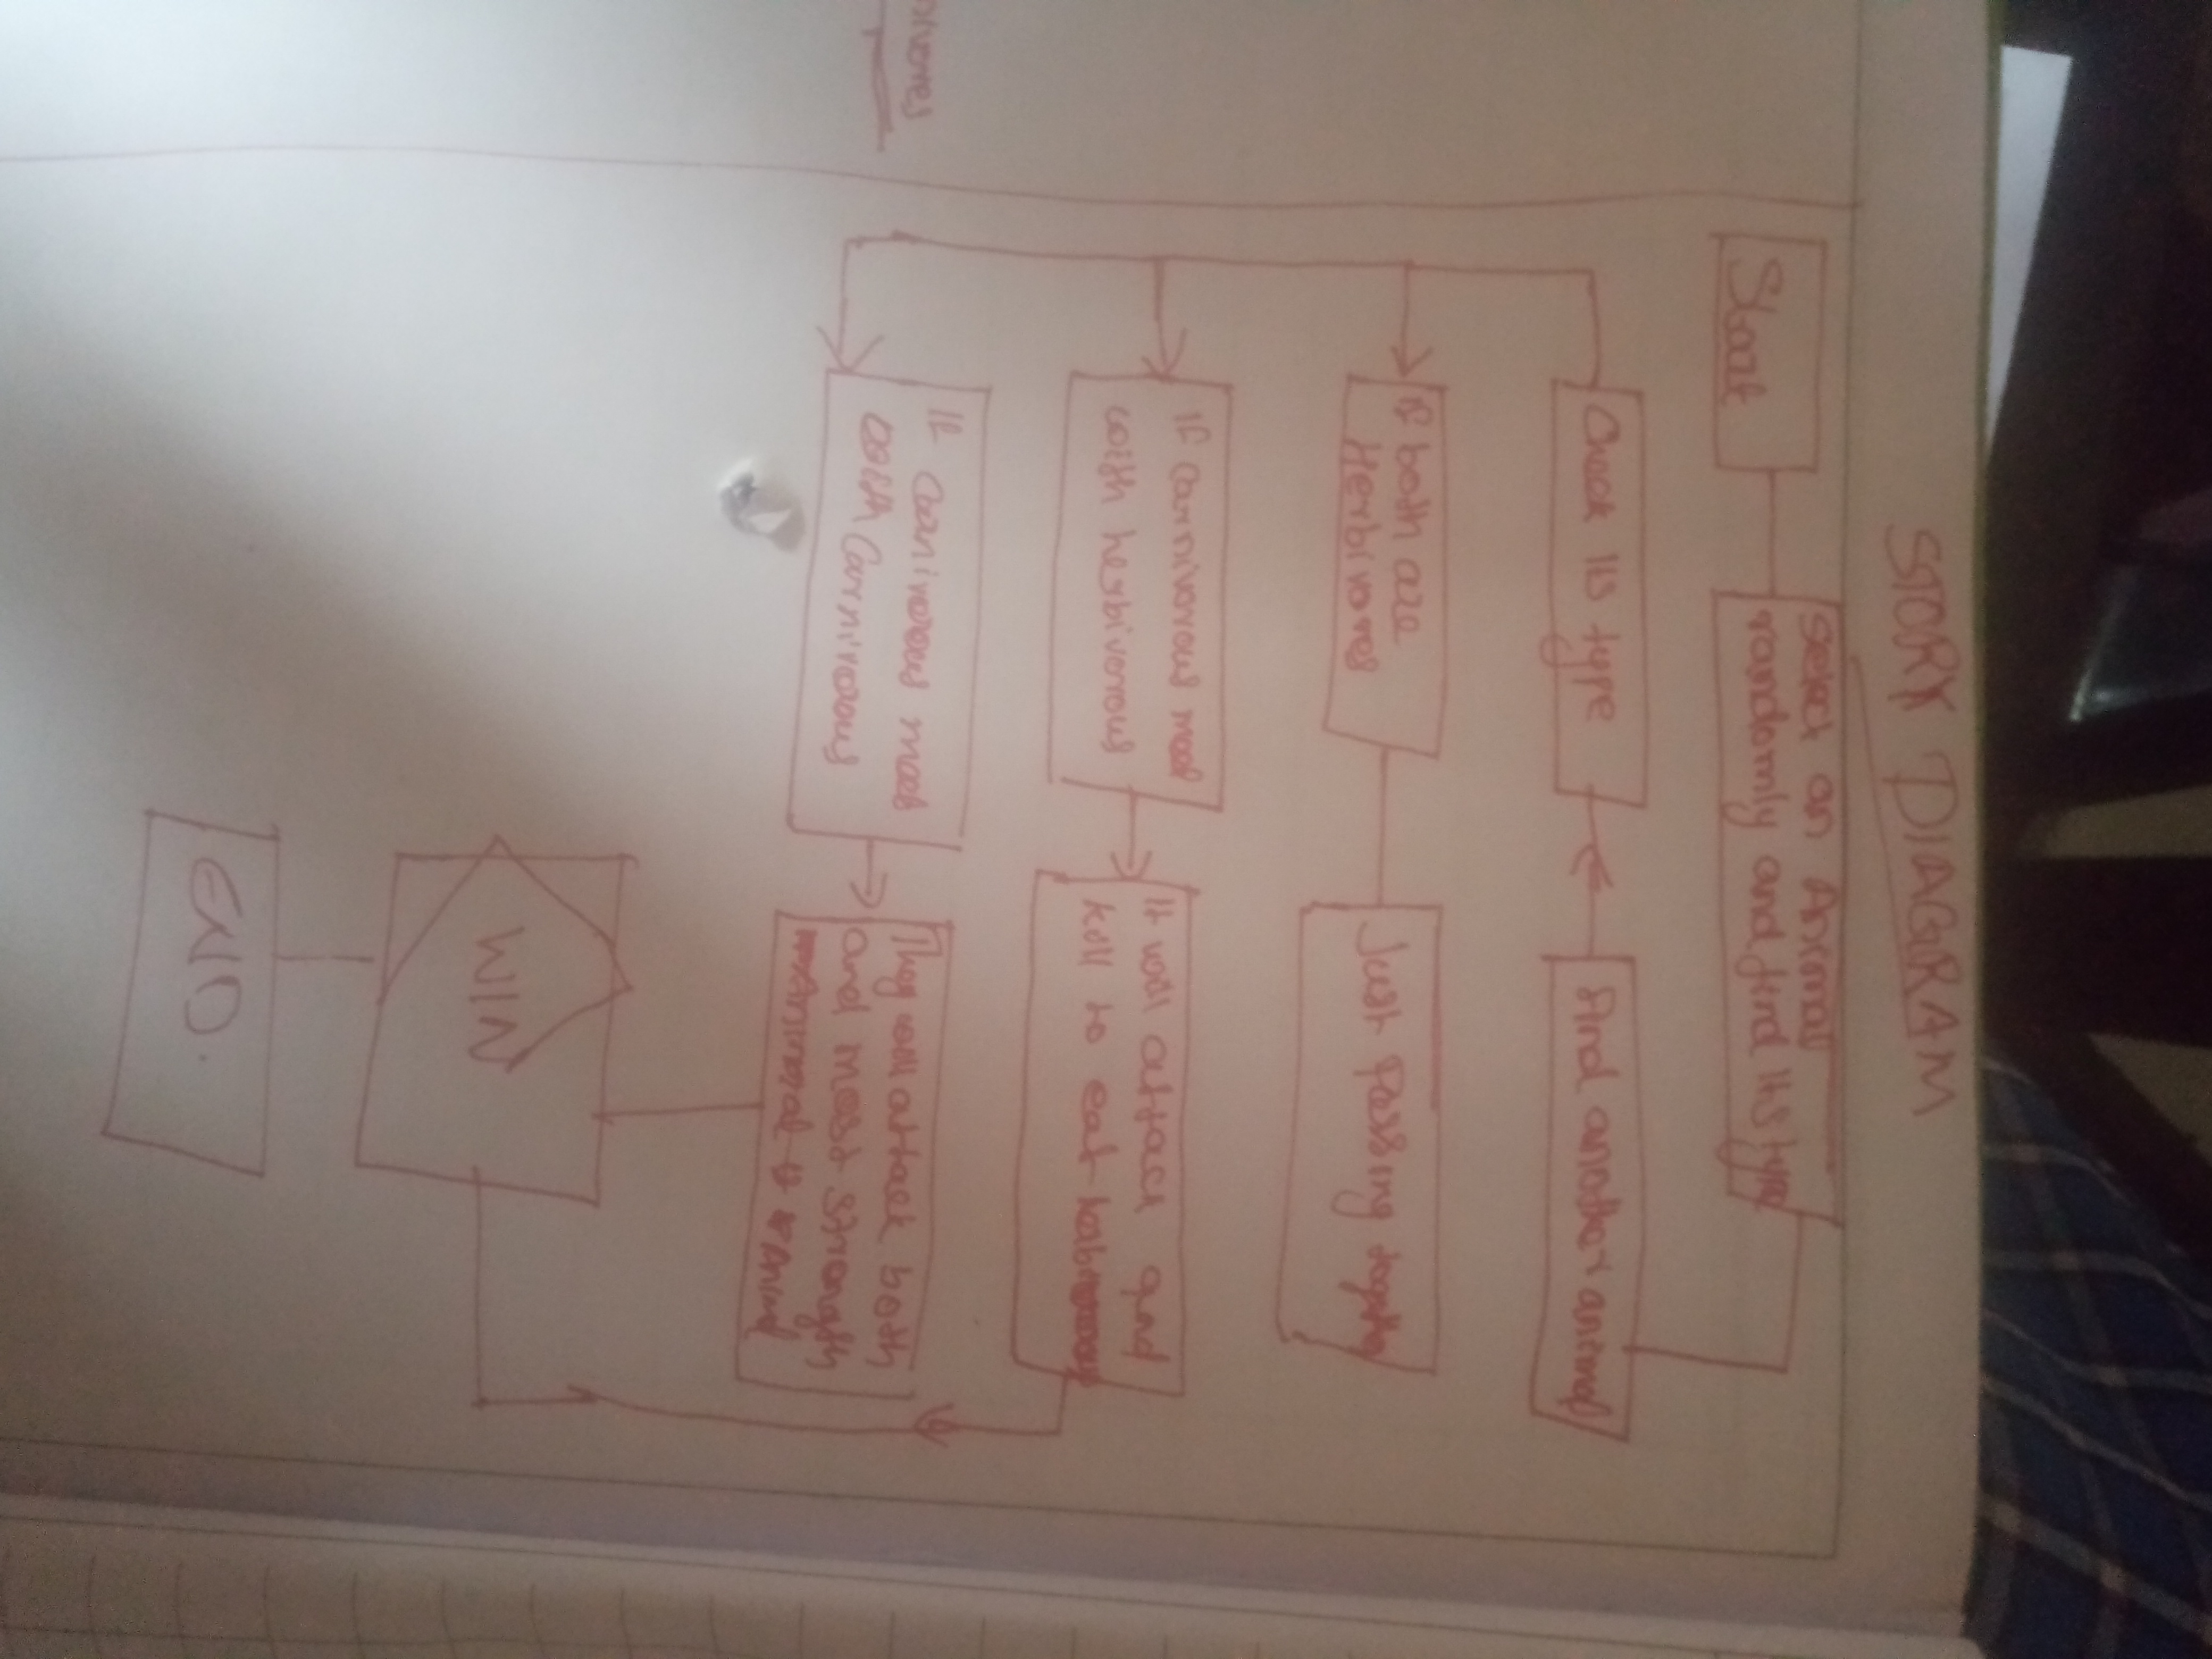 STORY DIAGRAM
Start
Select an Animal
randomly and find its type
find another animal
Check its type
If both are
Herbivores
Just Passing together
If carnivorous meet
with herbivorous
It will attack and
kill to eat
If carnivorous meet
with Carnivorous
They will attack both
and most strength
WIN
END.